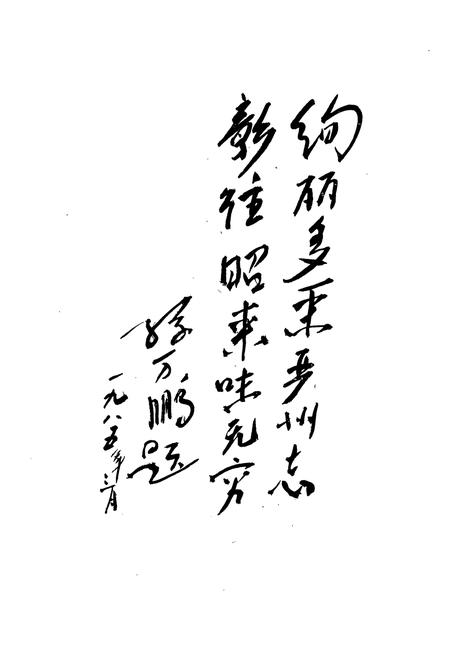 绚丽多采严州志
彰往昭来味无穷
孫万鹏题
一九八五年三月